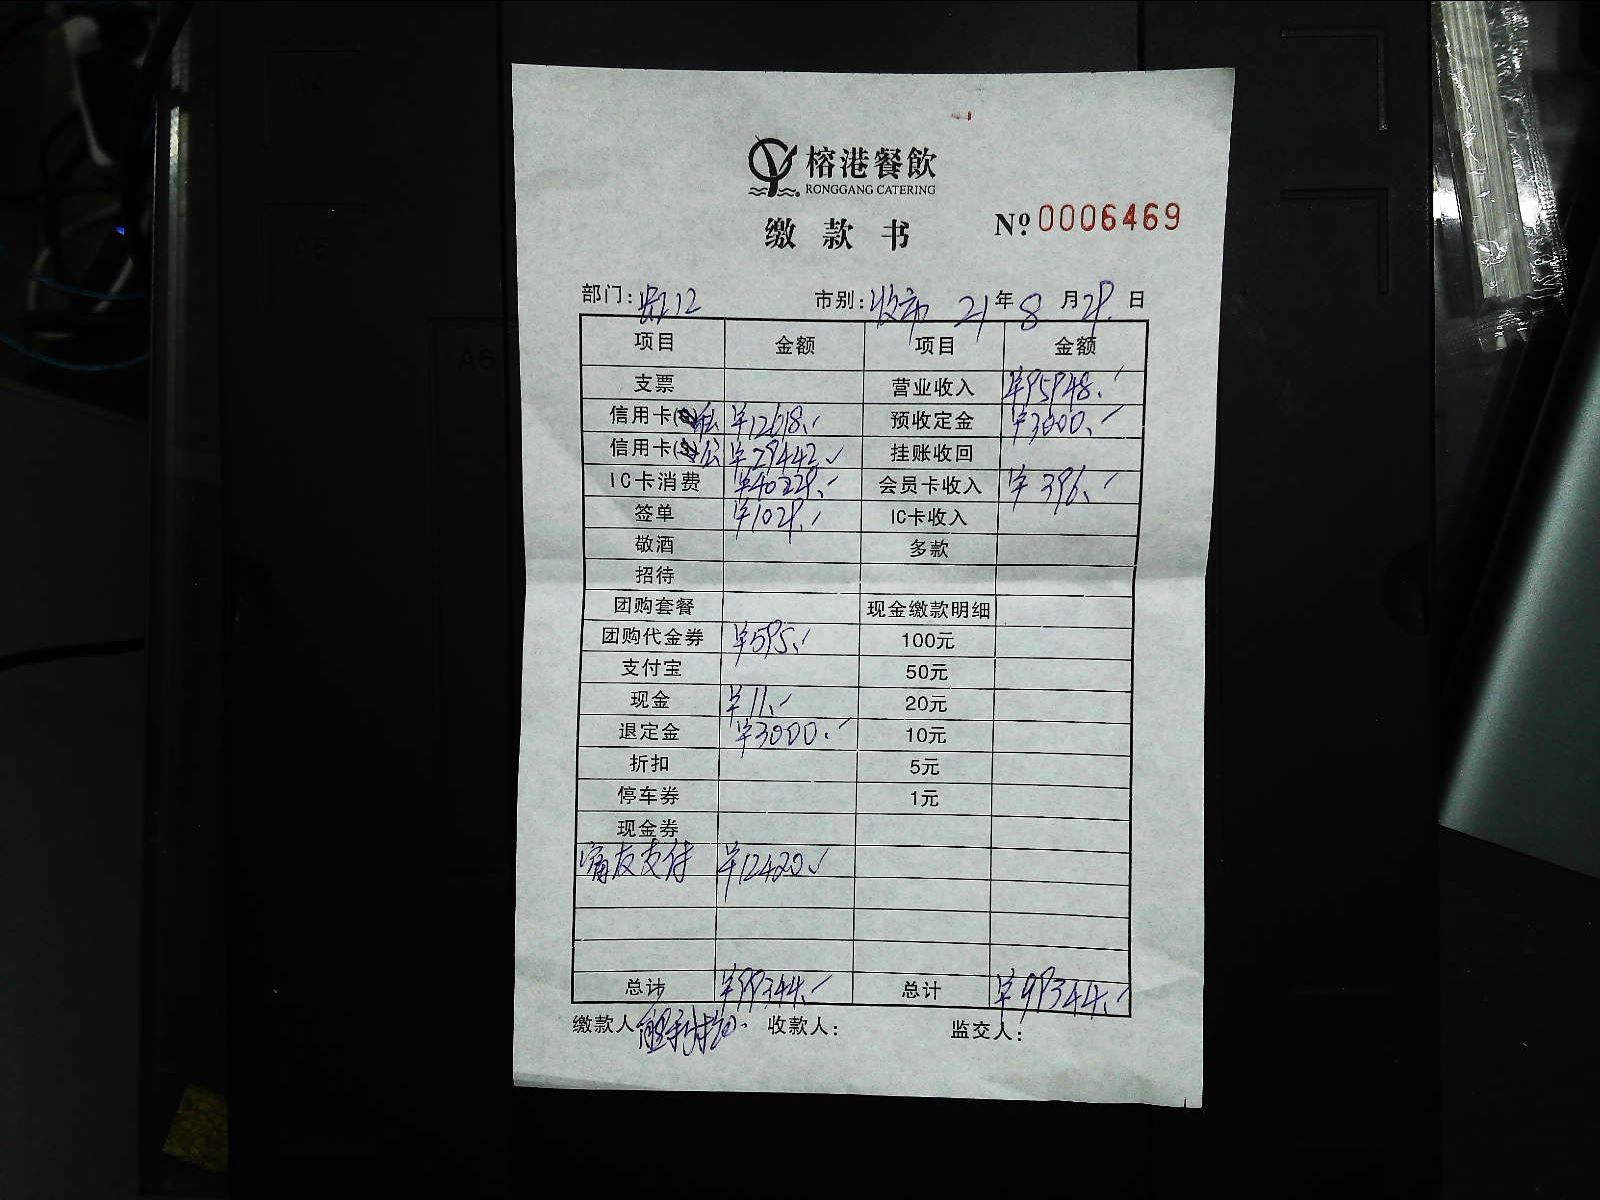 榕港餐飲
RONGGANG CATERING
缴款书
№ 0006469
部门: 市别: 收市 21年8月29日
项目 金额 项目 金额
支票 营业收入 ¥95948.
信用卡( 私 ¥12618. 预收定金 ¥3000.
信用卡( 公 ¥29442. 挂账收回
IC卡消费 ¥40229. 会员卡收入 ¥396.
签单 ¥1029. IC卡收入
敬酒 多款
招待
团购套餐 现金缴款明细
团购代金券 ¥595. 100元
支付宝 50元
现金 ¥11. 20元
退定金 ¥3000. 10元
折扣 5元
停车券 1元
现金券
友支付 ¥12420.
总计 ¥99344. 总计 ¥99344.
缴款人 收款人: 监交人: